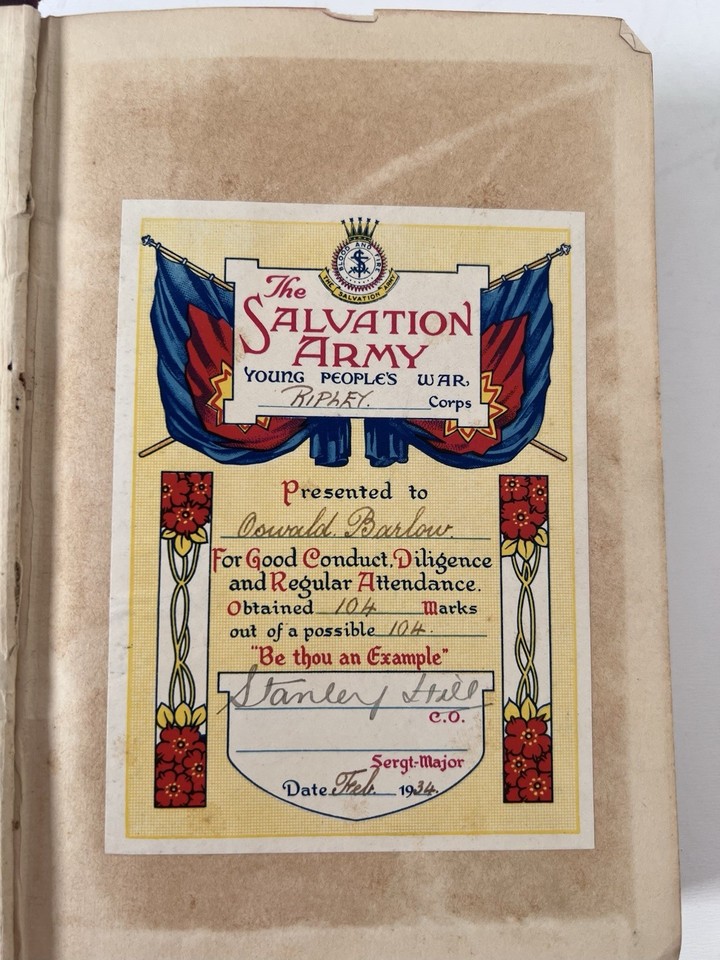 BLOOD AND FIRE
THE SALVATION ARMY
The
SALVATION
ARMY
YOUNG PEOPLE'S WAR,
RIPLEY. Corps
Presented to
Oswald. Barlow.
For Good Conduct, Diligence
and Regular Attendance.
Obtained 104 Marks
out of a possible 104.
"Be thou an Example"
Stanley Hill
C.O.
Sergt-Major
Date Feb. 1934.